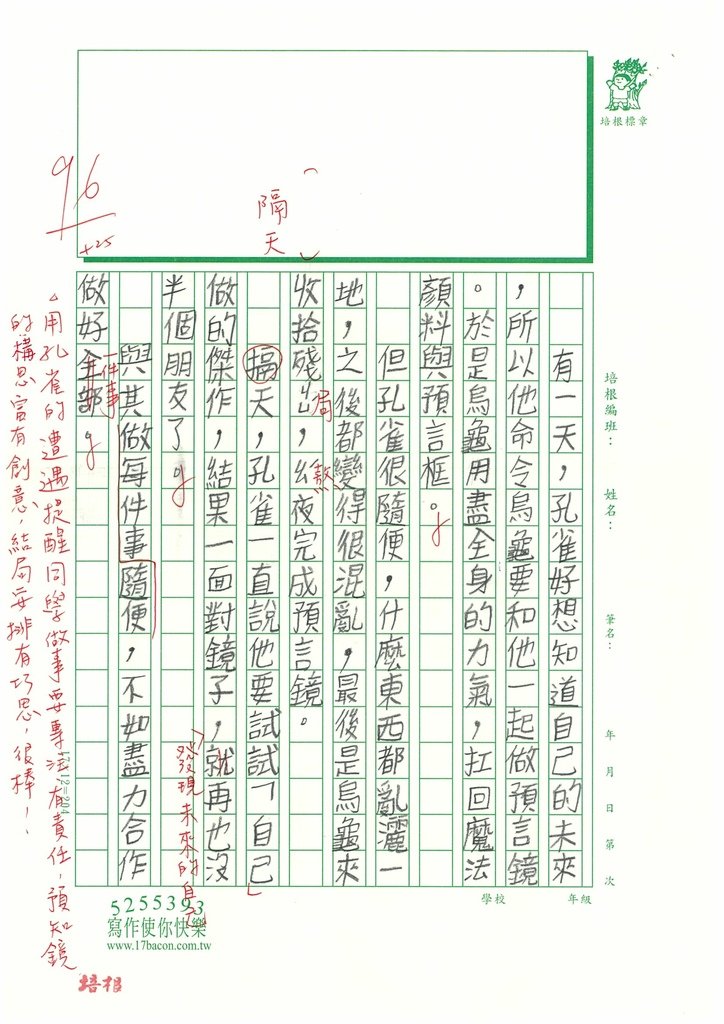 培根標章
培根編班：
姓名：
筆名：
年 月 日 第 次
學校
年級
有一天，孔雀好想知道自己的未來
，所以他命令烏龜要和他一起做預言鏡
。於是烏龜用盡全身的力氣，扛回魔法
顏料與預言框。
但孔雀很隨便，什麼東西都亂灑一
地，之後都變得很混亂，最後是烏龜來
收拾殘出，出夜完成預言鏡。
局
熬
搞天，孔雀一直說他要試試「自己」
隔天
做的傑作，結果一面對鏡子，就再也沒
發現未來的自己
半個朋友了。
與其做每件事隨便，不如盡力合作
做好全部。
一件事
96
+25
△用孔雀的遭遇提醒同學做事要專注有責任，預知鏡
的構思富有創意，結局安排有巧思，很棒！
17*12=204
5255393
寫作使你快樂
www.17bacon.com.tw
培根